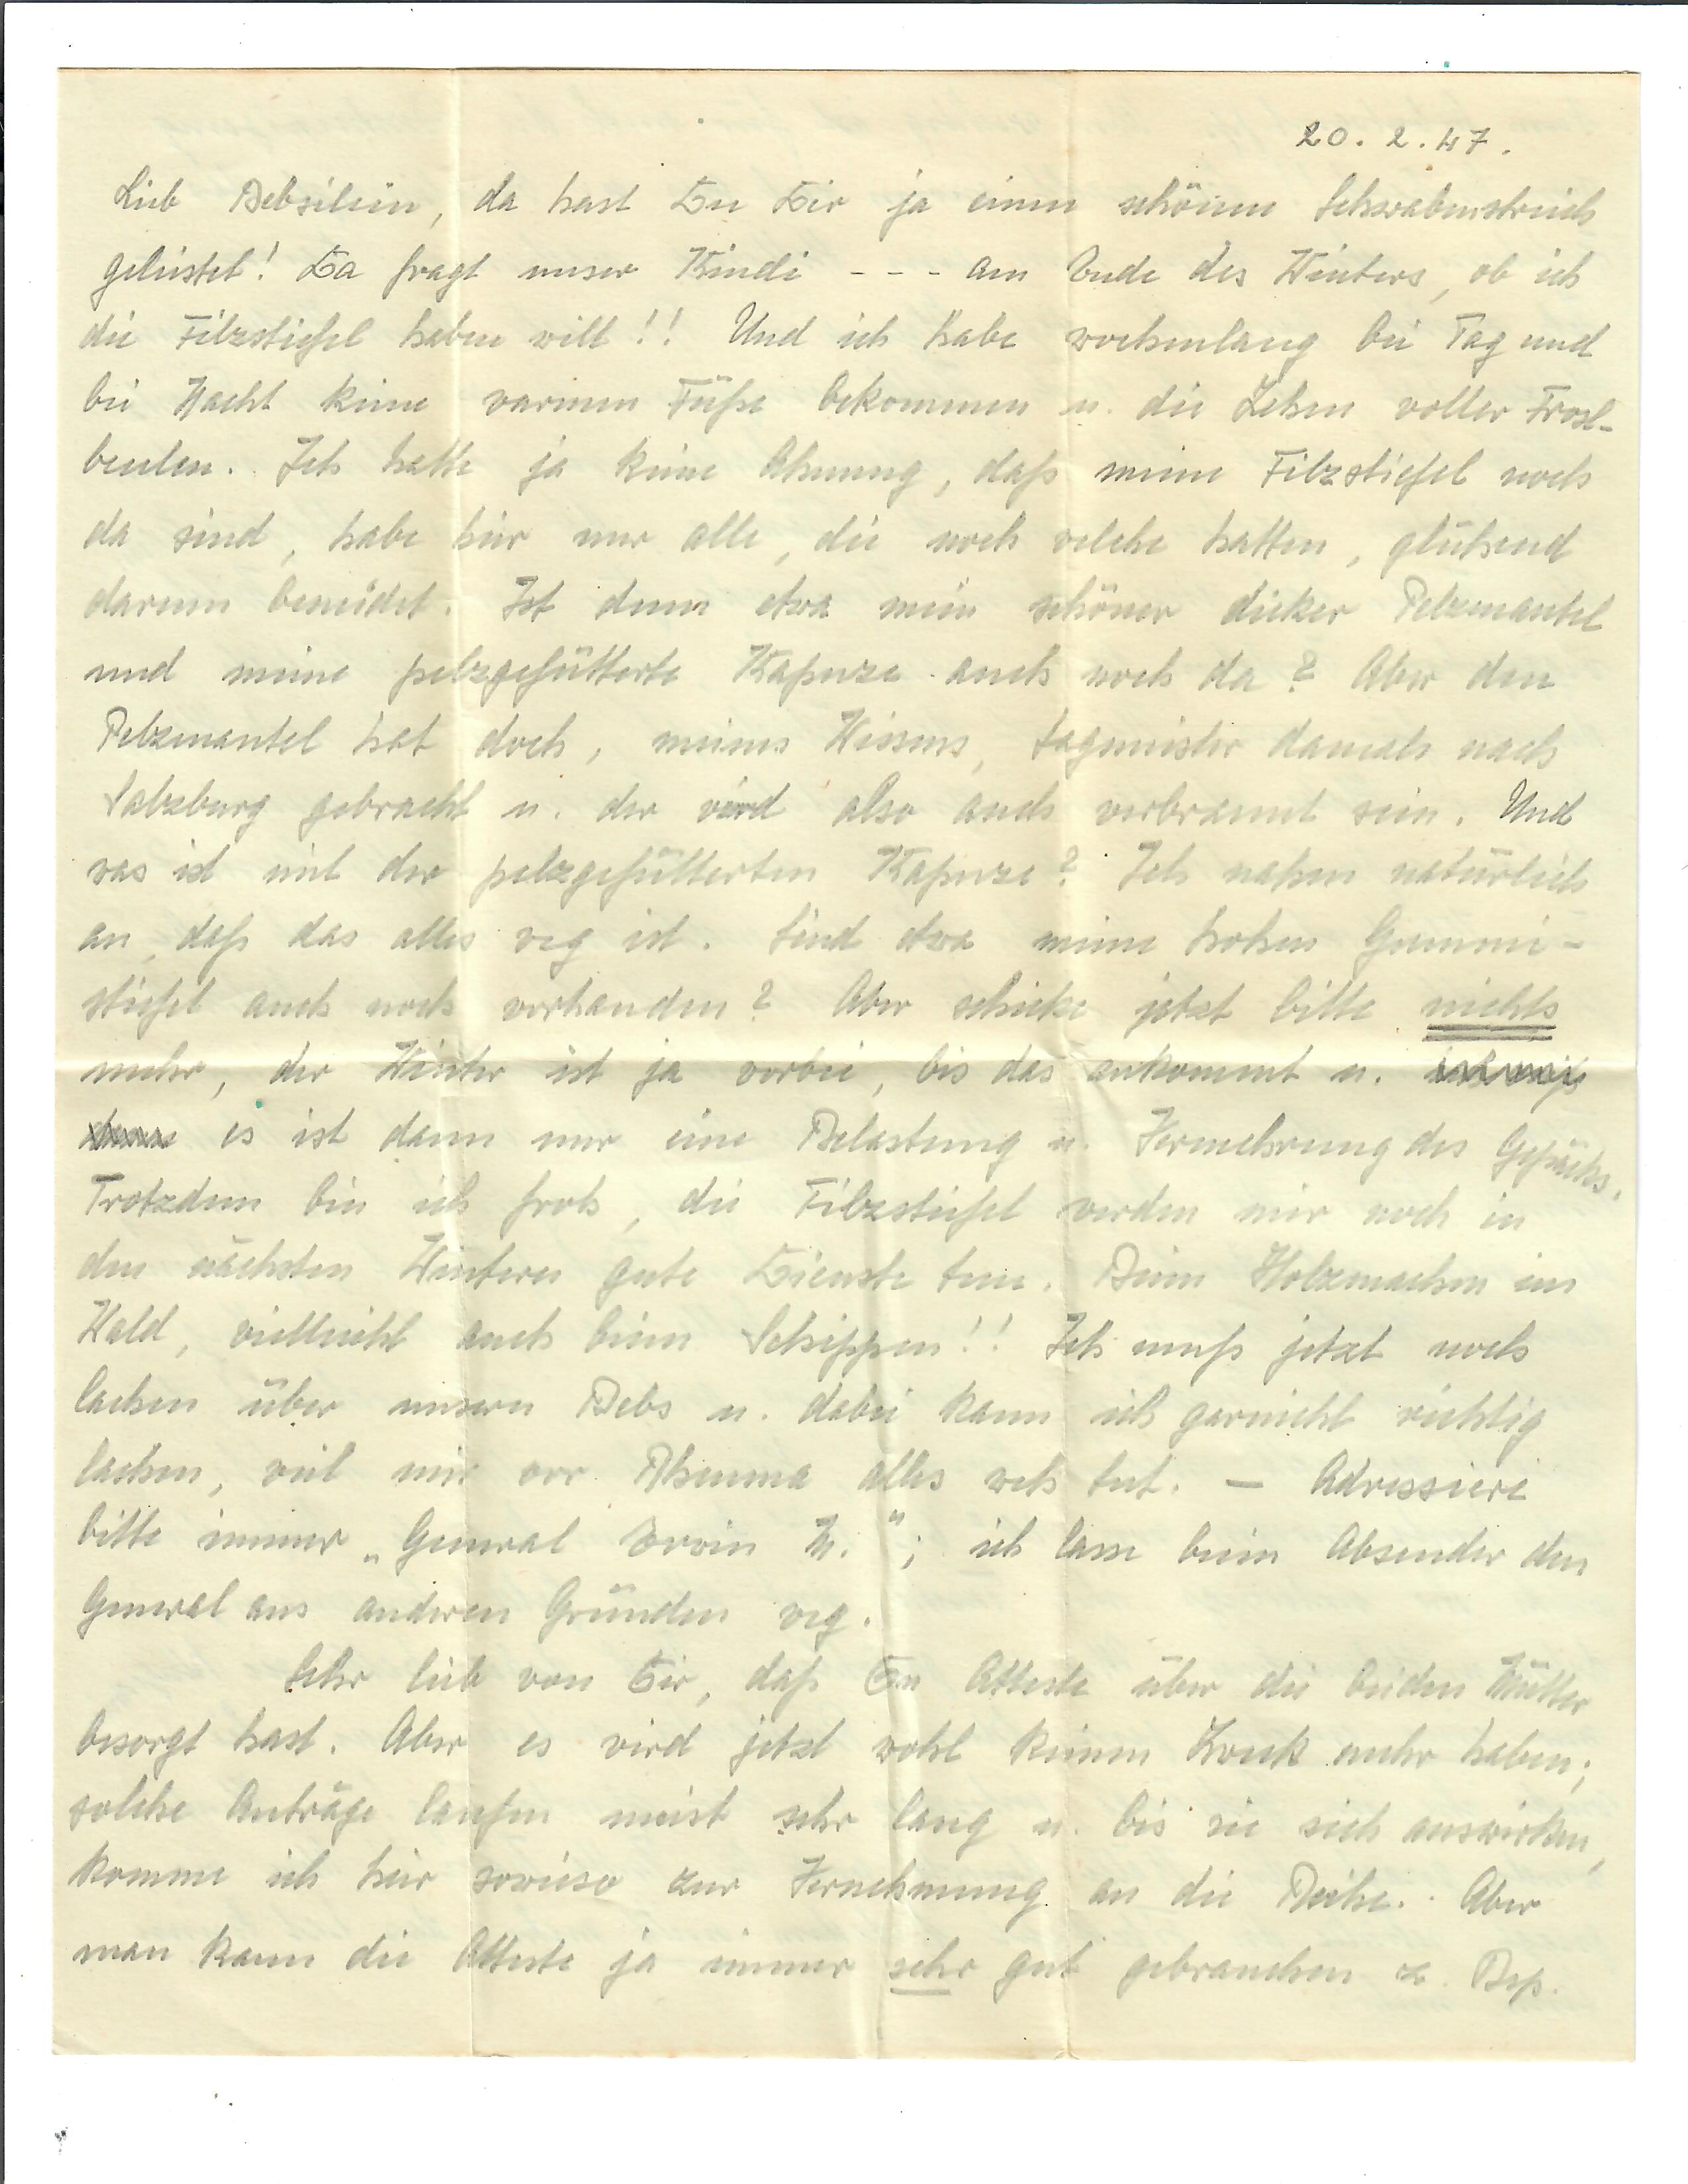 20. 2. 47.
Lieb Bebsilein, da hast Du Dir ja einen schönen Schwabenstreich
geleistet! Da fragt unser Kindi - - - am Ende des Winters, ob ich
die Filzstiefel haben will!! Und ich habe wochenlang bei Tag und
bei Nacht keine warmen Füße bekommen u. die Zehen voller Frost-
beulen. Ich hatte ja keine Ahnung, daß meine Filzstiefel noch
da sind, habe hier nur alle, die noch welche hatten, glühend
darum beneidet. Ist denn etwa mein schöner dicker Pelzmantel
und meine pelzgefütterte Kapuze auch noch da? Aber den
Pelzmantel hat doch, meines Wissens, Sagmeister damals nach
Salzburg gebracht u. der wird also auch verbrannt sein. Und
was ist mit der pelzgefütterten Kapuze? Ich nahm natürlich
an, daß das alles weg ist. Sind etwa meine hohen Gummi-
stiefel auch noch vorhanden? Aber schicke jetzt bitte nichts
mehr, der Winter ist ja vorbei, bis das ankommt u.
es ist dann nur eine Belastung u. Vermehrung des Gepäcks.
Trotzdem bin ich froh, die Filzstiefel werden mir noch in
den nächsten Wintern gute Dienste tun. Beim Holzmachen im
Wald, vielleicht auch beim Schippen!! Ich muß jetzt noch
lachen über unsern Bebs u. dabei kann ich garnicht richtig
lachen, weil mir vor Rheuma alles weh tut. — Adressiere
bitte immer „General Erwin M."; ich lasse beim Absender den
General aus anderen Gründen weg.
Sehr lieb von Dir, daß Du Atteste über die beiden Mütter
besorgt hast. Aber es wird jetzt wohl keinen Zweck mehr haben;
solche Anträge laufen meist sehr lang u. bis sie sich auswirken,
komme ich hier sowieso zur Vernehmung an die Reihe. Aber
man kann die Atteste ja immer sehr gut gebrauchen z. Bsp.